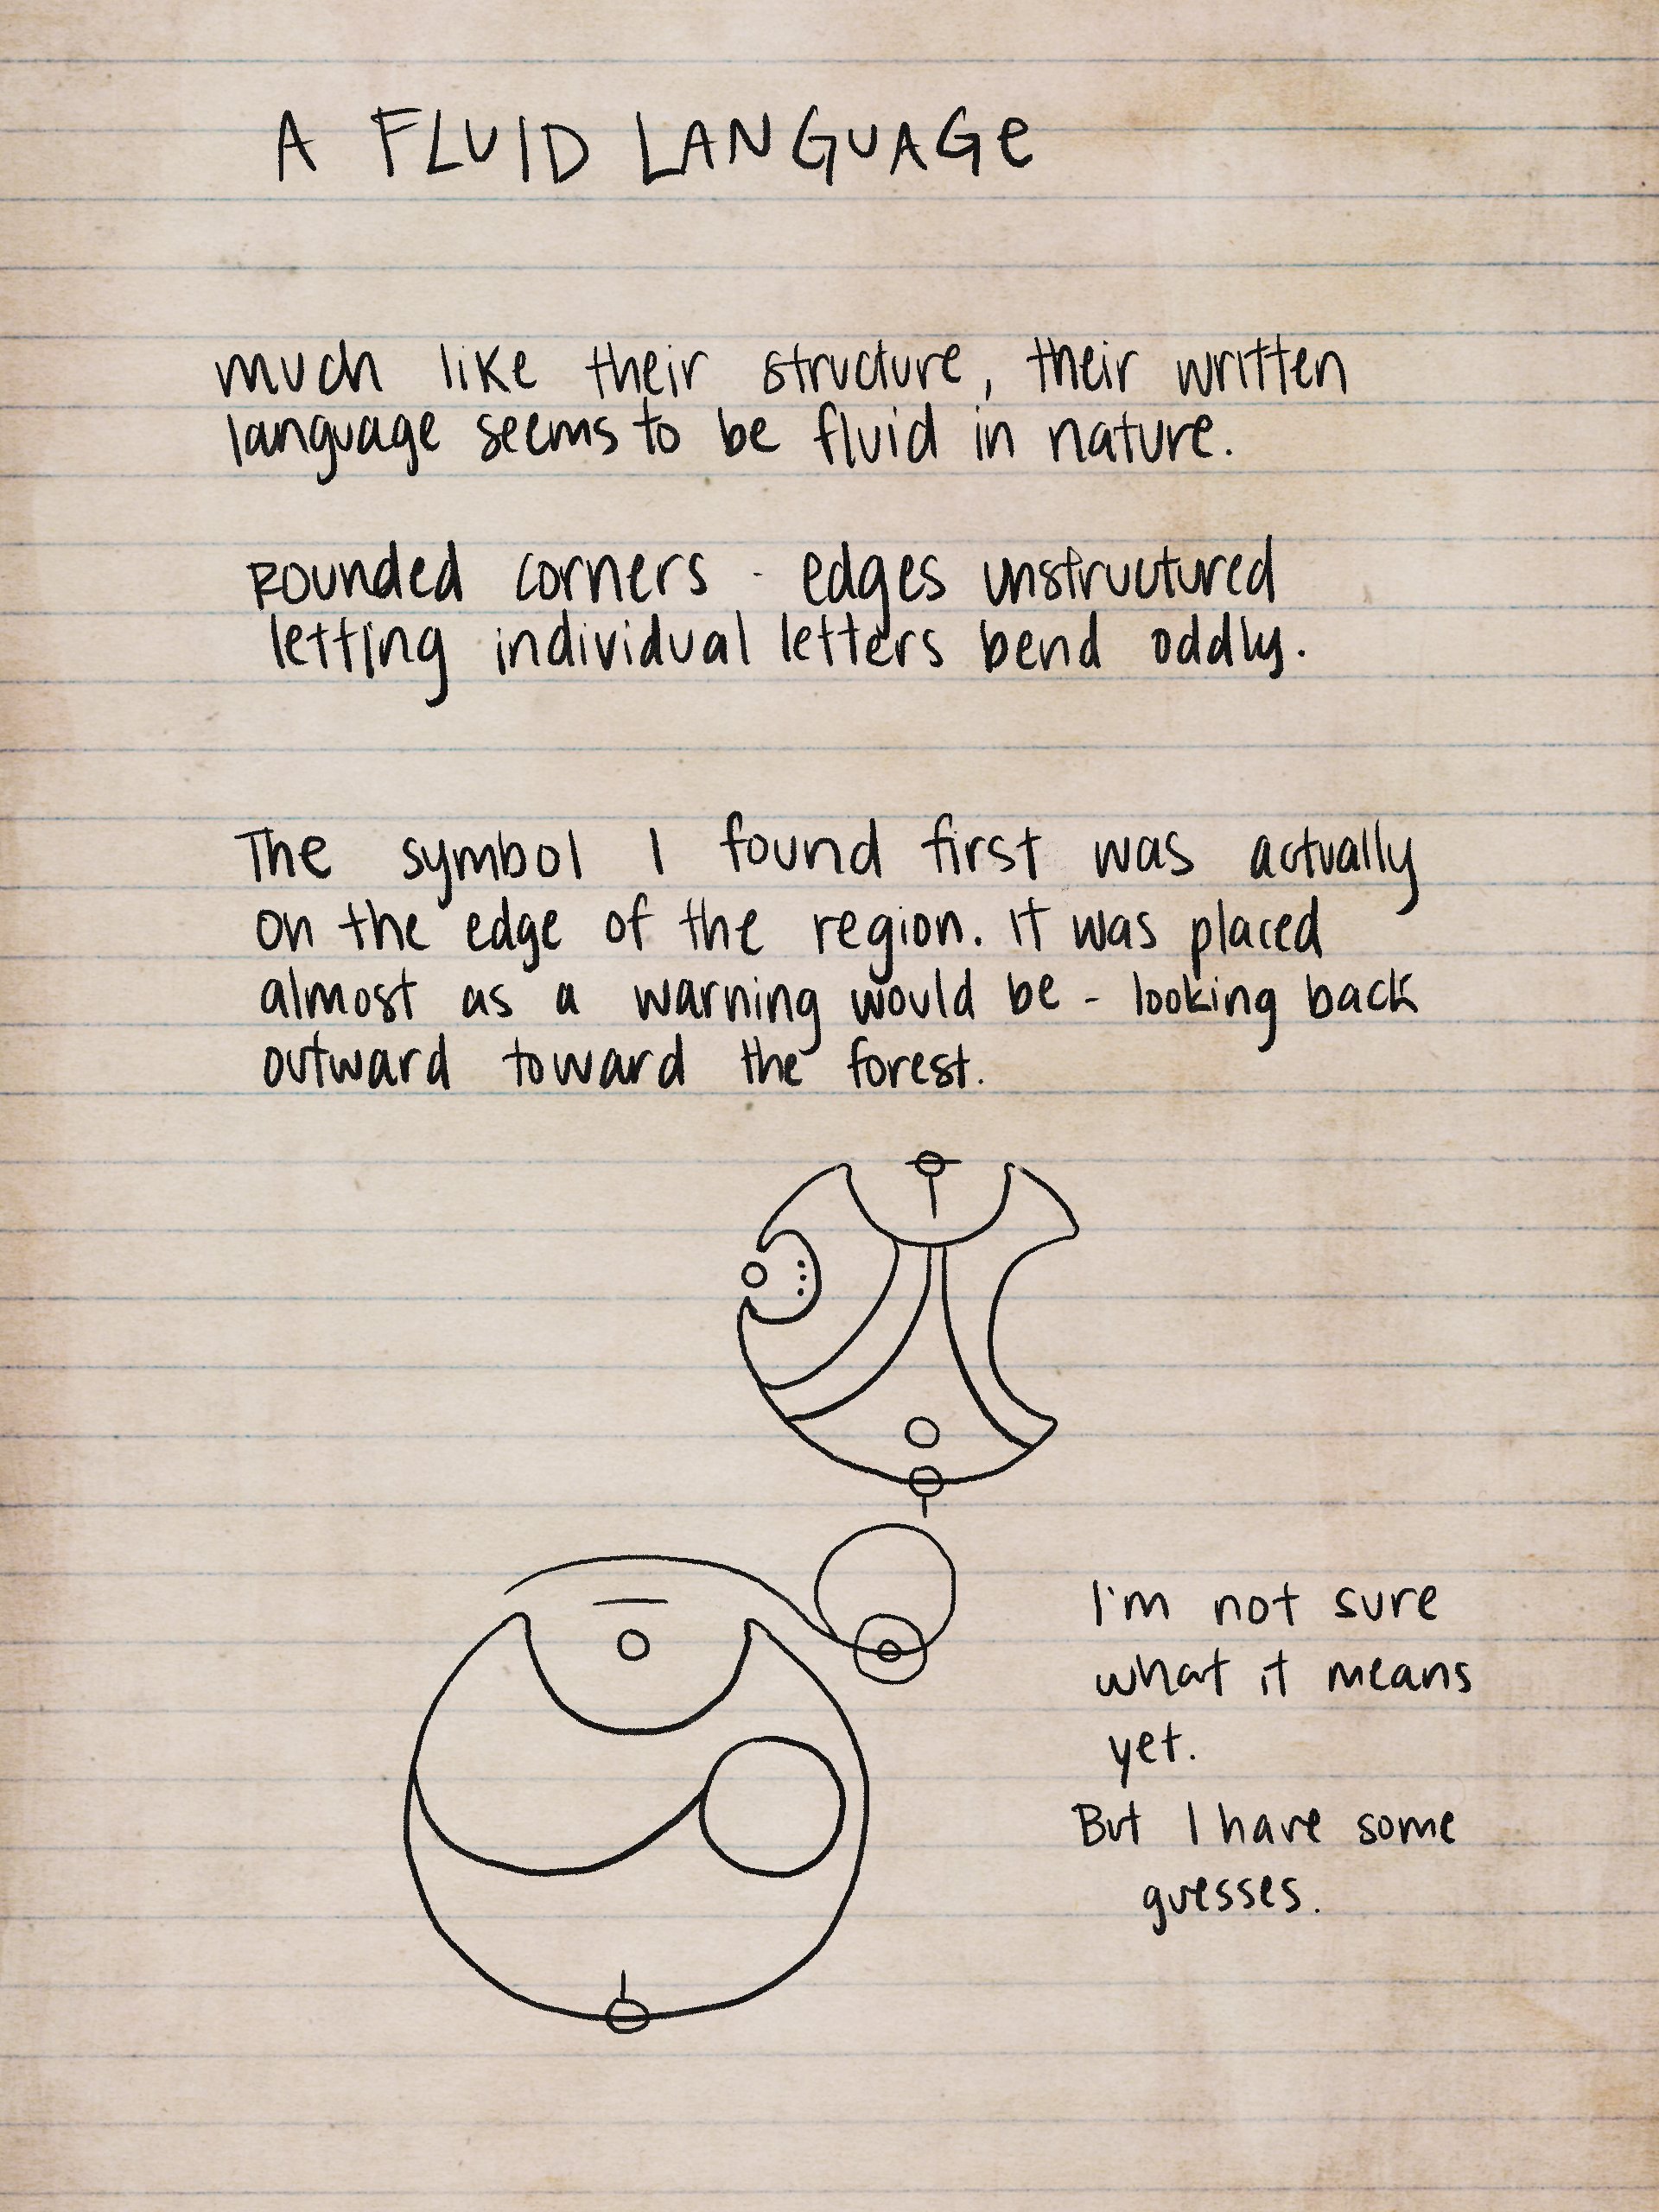 A FLUID LANGUAGE
much like their structure, their written
language seems to be fluid in nature.
Rounded corners - edges unstructured
letting individual letters bend oddly.
The symbol I found first was actually
on the edge of the region. It was placed
almost as a warning would be - looking back
outward toward the forest.
I'm not sure
what it means
yet.
But I have some
guesses.